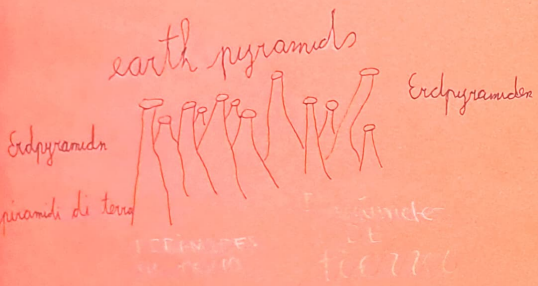 earth pyramids
Erdpyramiden
Erdpyramidn
piramidi di terra
tierra